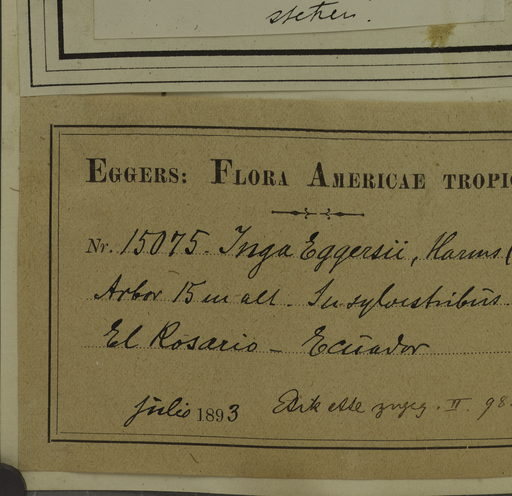 stehen.
EGGERS: FLORA AMERICAE TROPIC
Nr. 15075. Inga Eggersii, Harms (
Arbor 15 m alt. In sylvestribus.
El Rosario – Ecuador
julio 1893 II. 98.